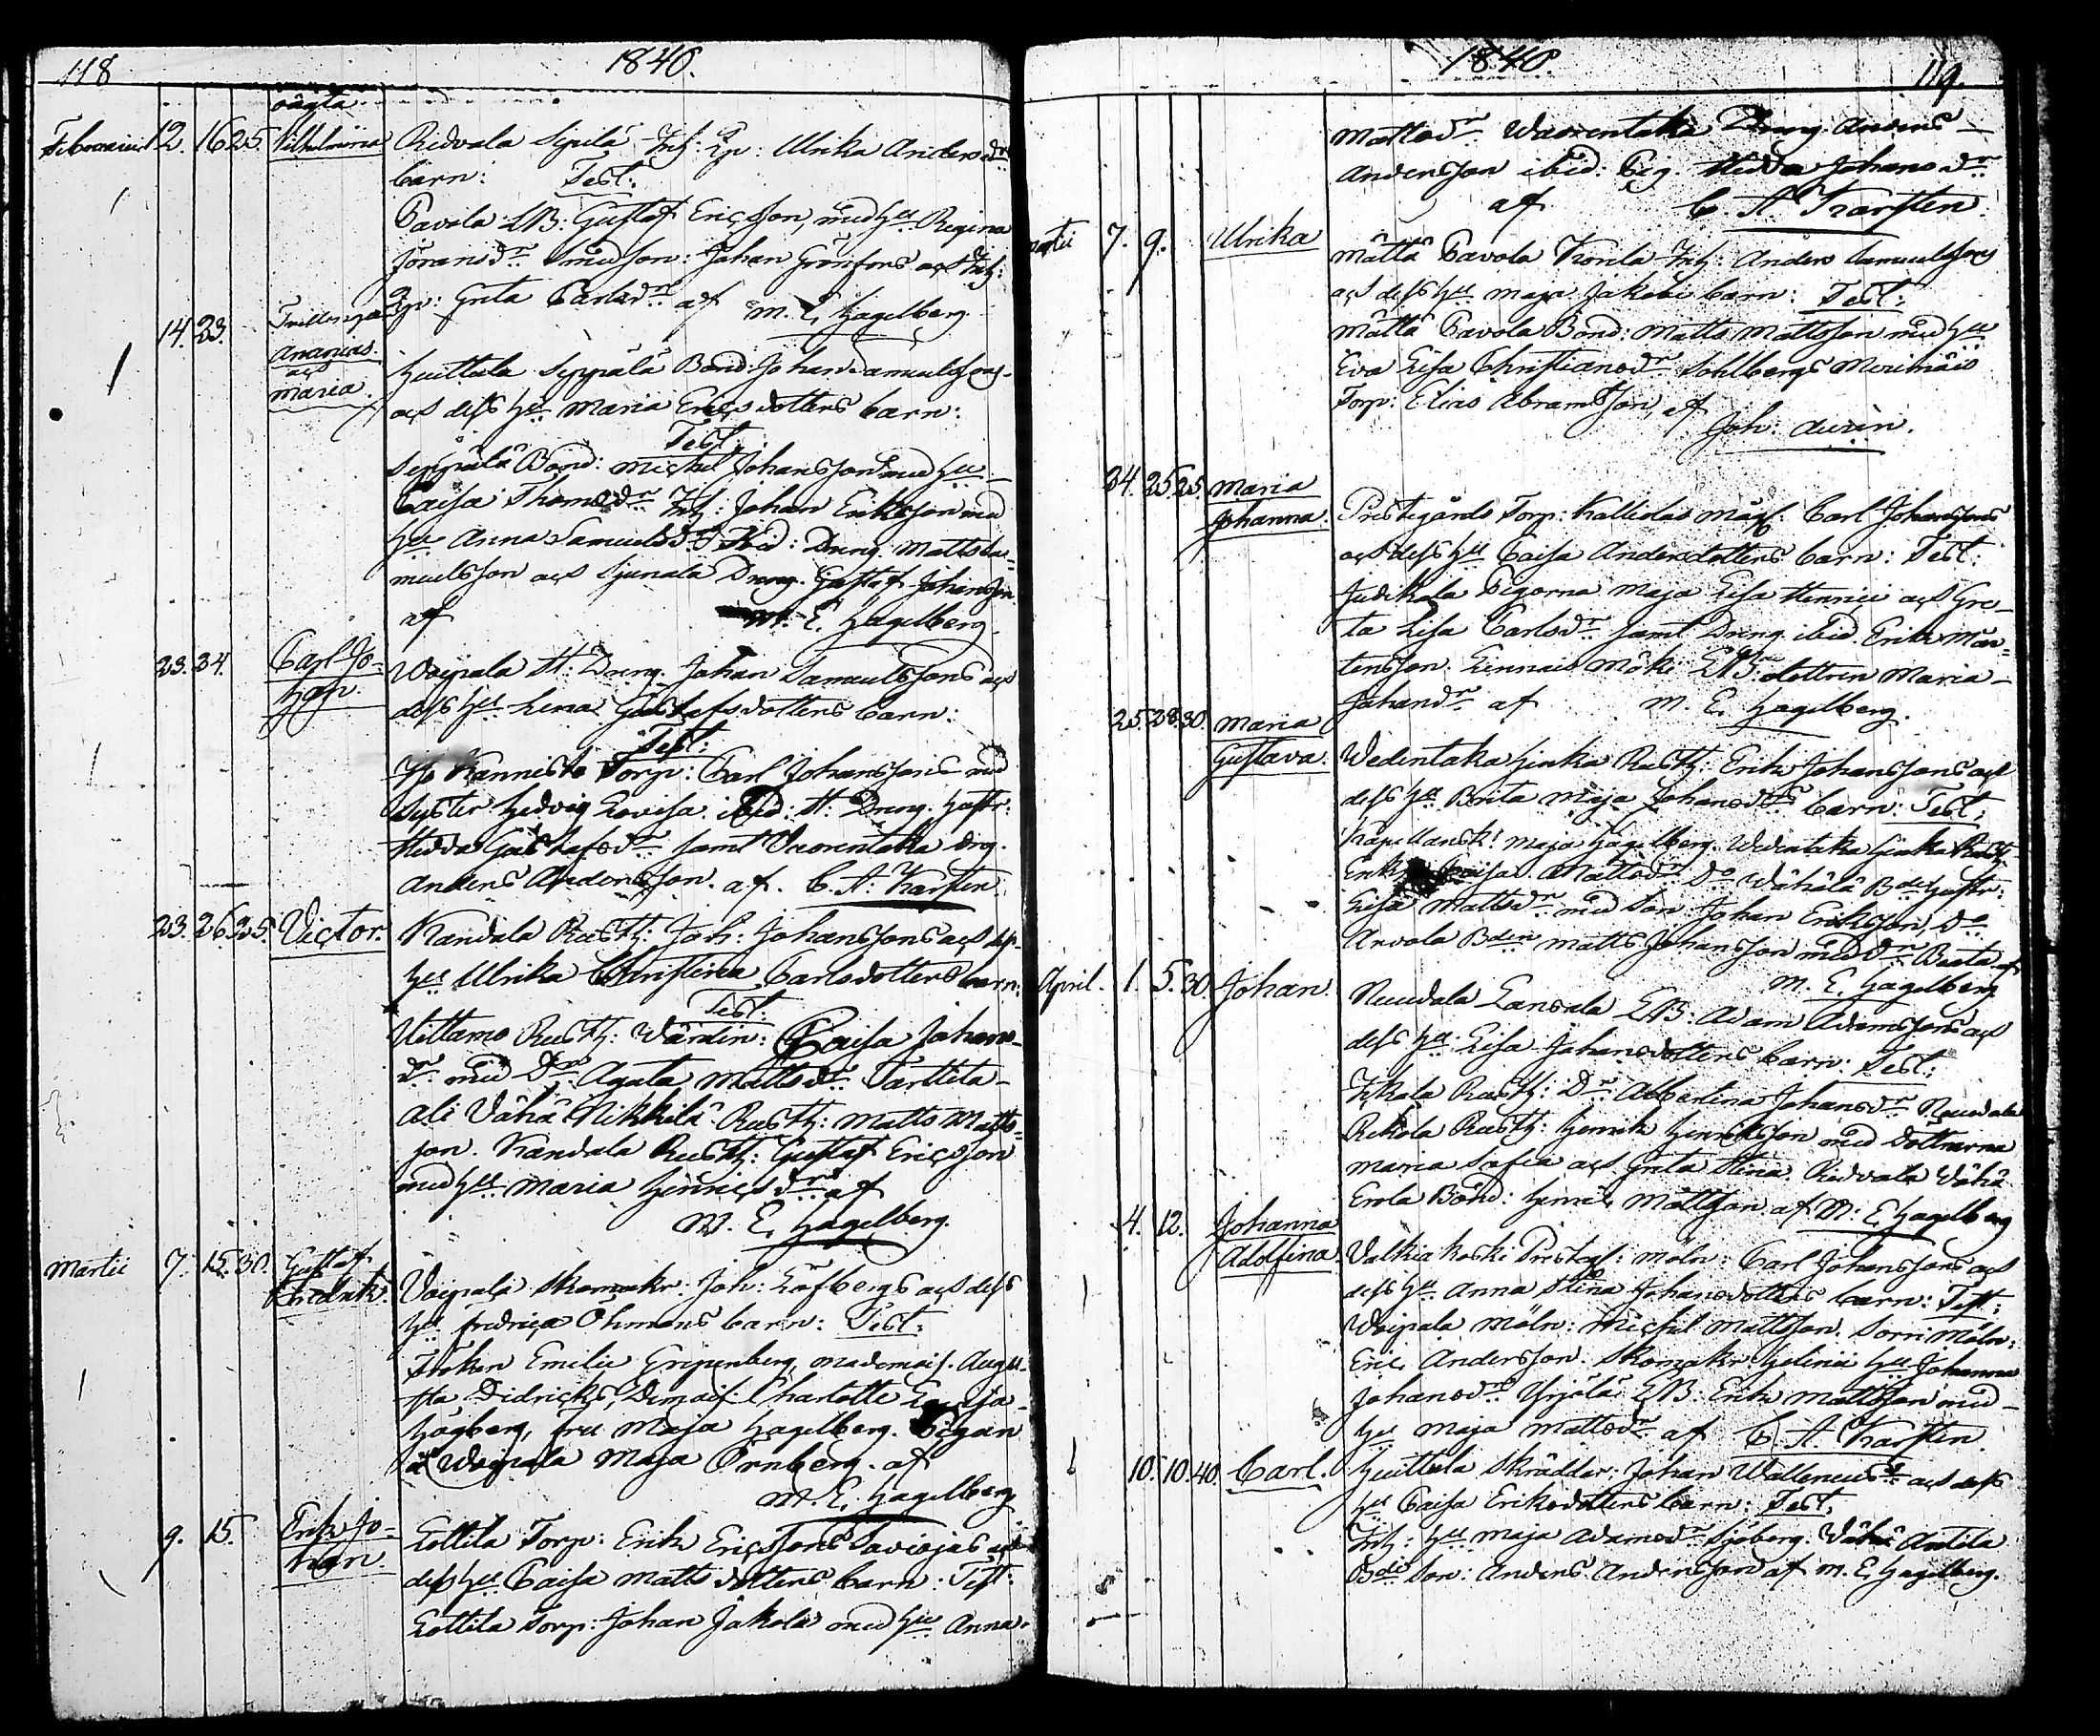 118
1840.
Februarii 12. 16 25. oägta Vilhelmina Ridvala Sipilä Inh: Ep: Ulrika Andersdr
barn: Test:
Pavola LB: Gustaf Ericsson, med Hu Regina
Jöransdr Smedson: Johan Grönfors och Inh:
Ep: Greta Carlsdr af M. E. Hagelberg
14. 23. Tvillingar Ananias och Maria Huittula Seppälä Bond: Johan Samuelssons
och dess Hu Maria Ericsdotters barn:
Test:
Seppälä Bond: Michel Johansson med Hu
Caisa Thomasdr Inh: Johan Eriksson med
Hu Anna Samuelsdr Ibid: Dreng Matts Sa-
muelsson och Sjunala Dreng Gustaf Johansson
af M. E. Hagelberg
23. 24. Carl Jo-
han. Voipala St: Dreng. Johan Samuelssons och
dess Hu Lena Gustafsdotters barn:
Test:
Kannisto Torp: Carl Johanssons med
Syster Hedvig Lovisa ibid: St: Dreng. Hustr:
Hedda Gustafsdr samt Vuorentaka Drg.
Anders Andersson. af. C. A. Karsten
23. 26 25. Victor. Kandala Rusth: Joh: Johanssons och dess
Hu Ulrika Christina Carlsdotters barn:
Test:
Uittamo Rusth: Värdin: Caisa Johans-
dr med Dr Agata Mattsdr Tarttila
Ali Vähä Nikkilä Rusth: Matts Matts-
son. Kandala Rusth: Gustaf Ericsson
med Hu Maria Henricsdr af
M. E. Hagelberg.
Martii 7. 15. 30. Gustaf Fredrik. Voipala Skomakr: Joh: Löfbergs och dess
Hu Fredrica Öhmans barn: Test:
Fröken Emilie Gripenberg, Mademois. Augu-
sta Didricks, Demois: Charlotte Lovisa
Högberg, fru Maja Hagelberg. Pigan
å Voipala Maja Örnberg. af
M. E. Hagelberg
9. 15. Erik Jo-
han. Lottila Torp: Erik Ericssons Saviojas och
dess Hu Caisa Mattsdotters barn: Test:
Lottila Torp: Johan Jakola med Hu Anna
1840.
119.
Mattsdr Vuorentaka Dreng Anders
Andersson ibid: Pig. Hedda Johansdr
af C. A. Karsten
Martii 7. 9. Ulrika Mältä Pavola Konla Inh: Anders Samuelssons
och dess Hu Maja Jakobs barn: Test:
Mältä Pavola Bond: Matts Mattsson med Hu
Eva Lisa Christiansdr Sohlbergs
Torp: Elias Abramsson, af
Joh: Durèn.
24. 25 25. Maria
Johanna. Prestegårds Torp: Kalliolas Måg: Carl Johanssons
och dess Hu Caisa Andersdotters barn: Test:
Judikala Pigorna Maja Lisa Henrici och Gre-
ta Lisa Carlsdr samt Dreng ibid. Erik Mår-
tensson. Linnais Mäki LB: dottren Maria
Johansdr af M. E. Hagelberg.
25. 28 30. Maria
Gustava. Vedentaka Hinka Rusth: Erik Johanssons och
dess Hu Brita Maja Johansdrs barn: Test:
Kapellansk: Maja Hagelberg. Vedentaka Hinka Rusth:
Enk: Caisa Mattsdr Do Vähälä Bde Hustr:
Lisa Mattsdr med Son: Johan Eriksson, Do
Arvola Bden Matts Johansson med Dr Beata af
M. E. Hagelberg
April. 1. 5. 30. Johan. Nuudala Lansala LB: Adam Adamssons och
dess Hu Lisa Johansdotters barn: Test:
Iskala Rusth: Dr Albertina Johansdr Nuudala
Rekola Rusth: Henrik Henriksson med Döttrarna
Maria Sofia och Greta Stina. Ridvala Vähä
Erola Bond: Henrik Mattsson af M: E. Hagelberg
4. 12. Johanna
Adolfina. Valkiakoski Prestg: Möln: Carl Johanssons och
dess Hu Anna Stina Johansdotters barn: Test:
Voipala Möln: Michel Mattsson. Sorri Möln:
Eric Andersson. Skomakr Helinii Hu Johanna
Johansdr Yrjölä LB: Erik Mattsson med
Hu Maja Mattsdr af C. A. Karsten.
10. 10. 40. Carl. Huittula Skräddar: Johan Wallenius och dess
Hu Caisa Eriksdotters barn: Test.
Inh: Hu Maja Adamsdr Sjöberg. Vähä Antila
Bde Son: Anders Andersson af M. E. Hagelberg.